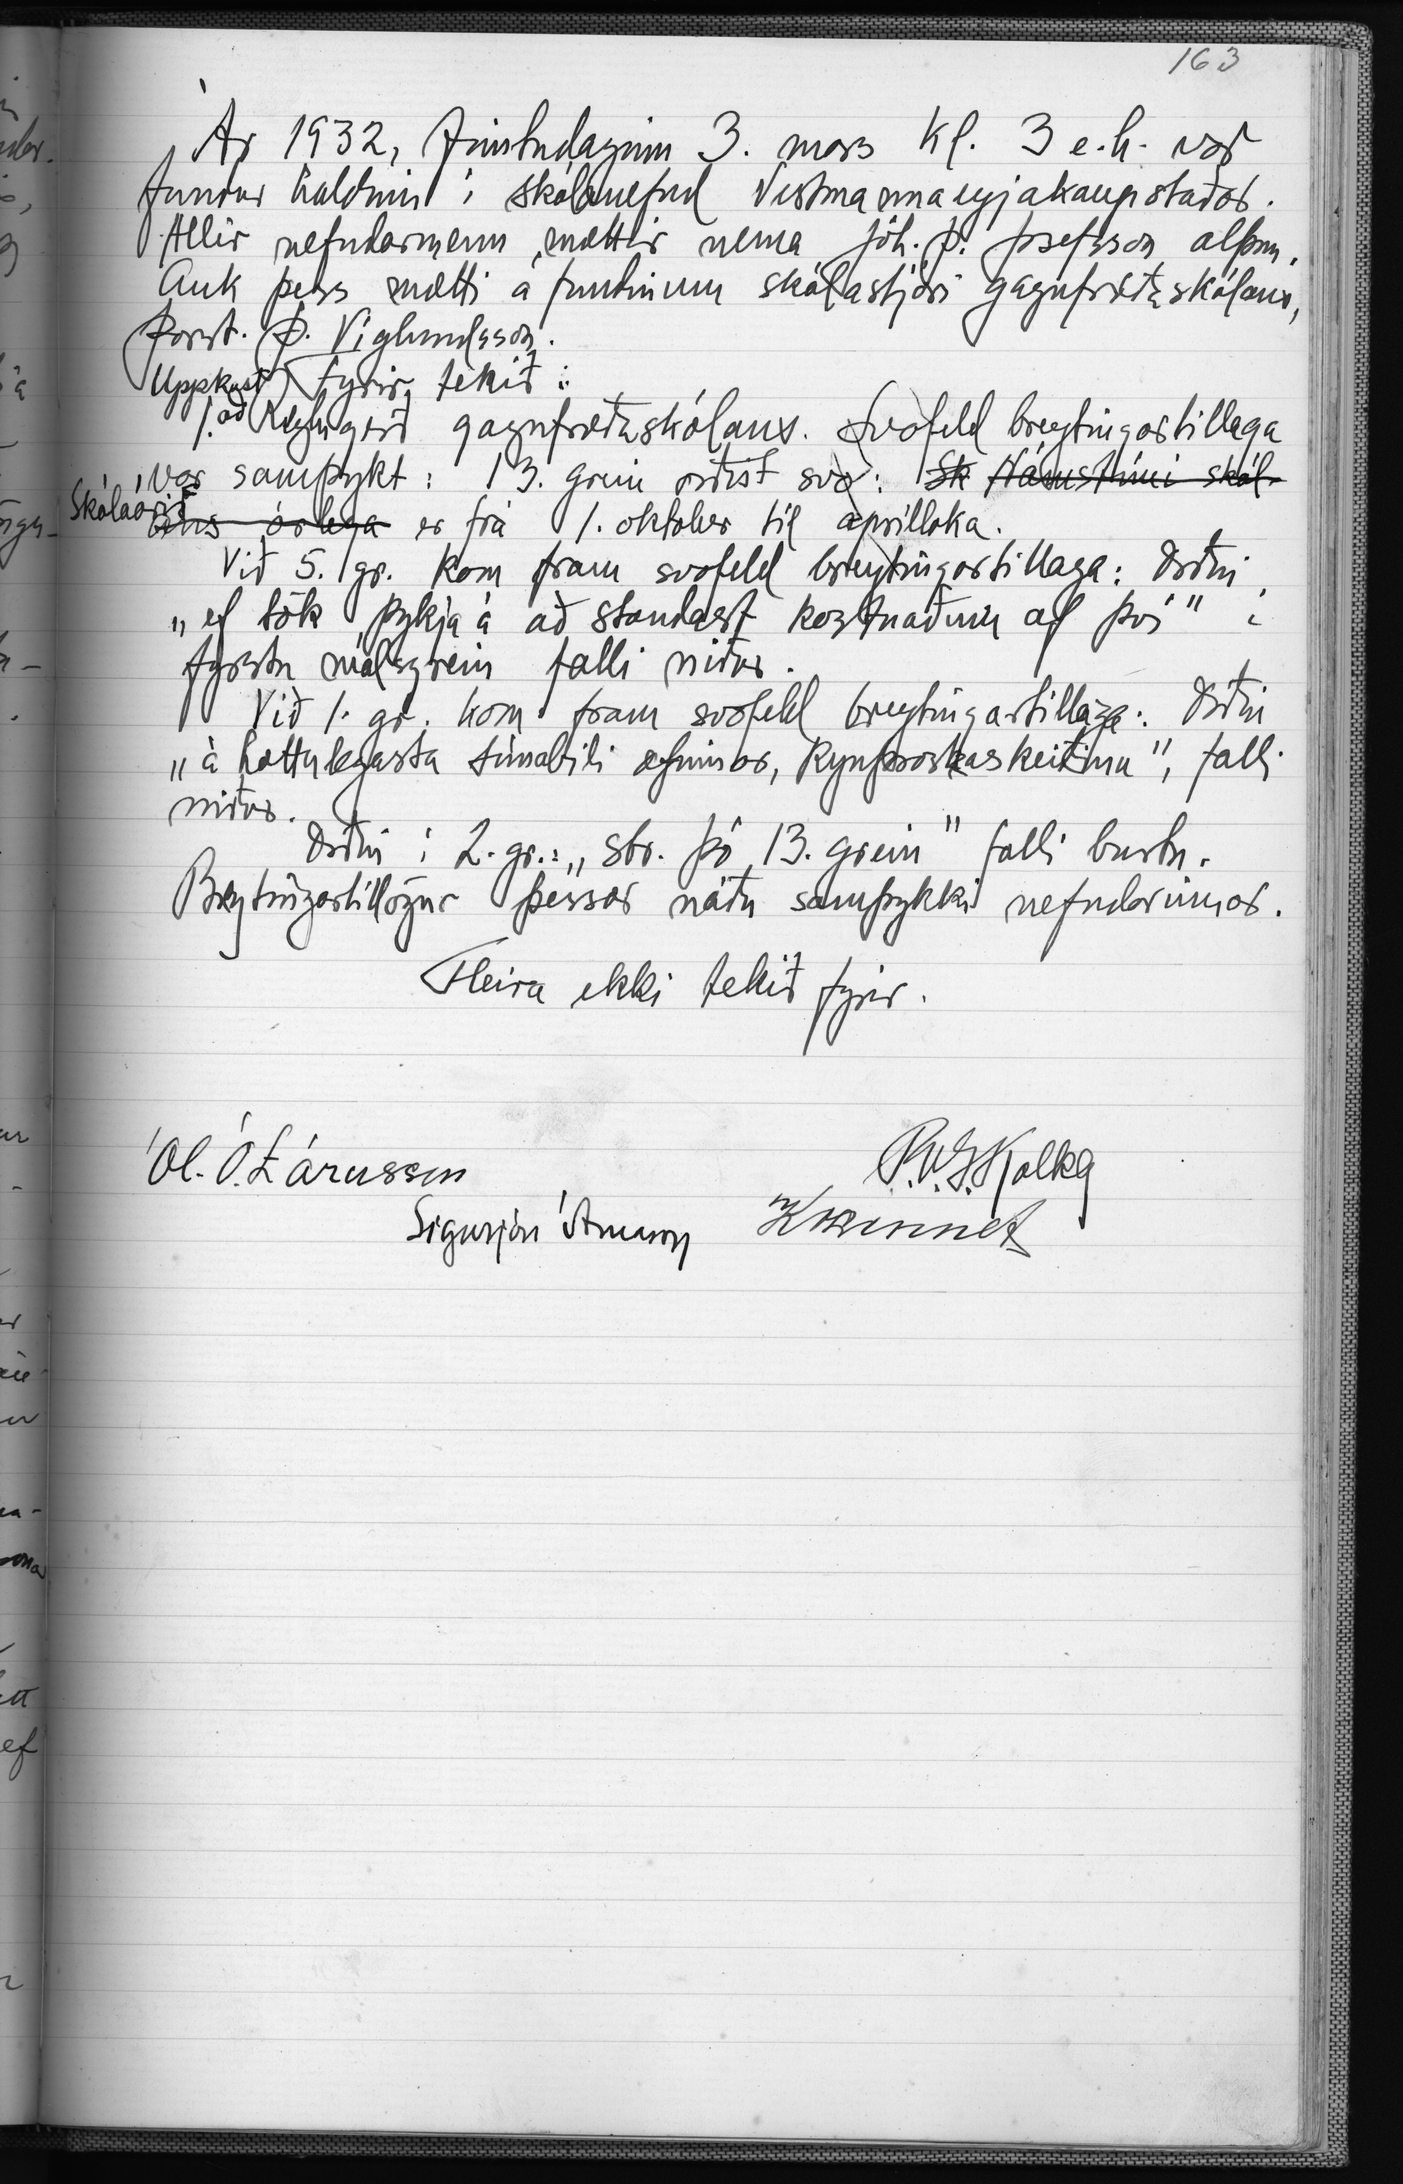 163
Ár 1932, fimtudaginn 3. mars kl. 3 e.h. var
fundur haldinn í skólanefnd Vestmannaeyjakaupstaðar.
Allir nefndarmenn mættir nema Jóh. Þ. Jósefsson alþm.
Auk þess mætti á fundinum skólastjóri gagnfræðaskólans,
Þorst. Þ. Víglundsson.
Fyrir tekið:
1. Uppkast að Reglugerð gagnfræðaskólans. Svofeld breytingartillaga
var samþykt: 13. grein orðist svo: Sk Námstími skól-
ans árlega Skólaárið er frá 1. október til aprílloka.
Við 5. gr. kom fram svofeld breytingartillaga: Orðin
„ef tök þykja á að standast kostnaðinn af því" í
fyrstu málsgrein falli niður.
Við 1. gr. kom fram svofeld breytingartillaga: Orðin
„á hættulegasta tímabili æfinnar, kynþroskaskeiðinu", falli
niður.
Orðin í 2. gr.: „sbr. þó 13. grein" falli burtu.
Breytingartillögur þessar náðu samþykki nefndarinnar.
Fleira ekki tekið fyrir.
Ól. Ó. Lárusson
P.V.G. Kolka
Sigurjón Árnason
K Linnet